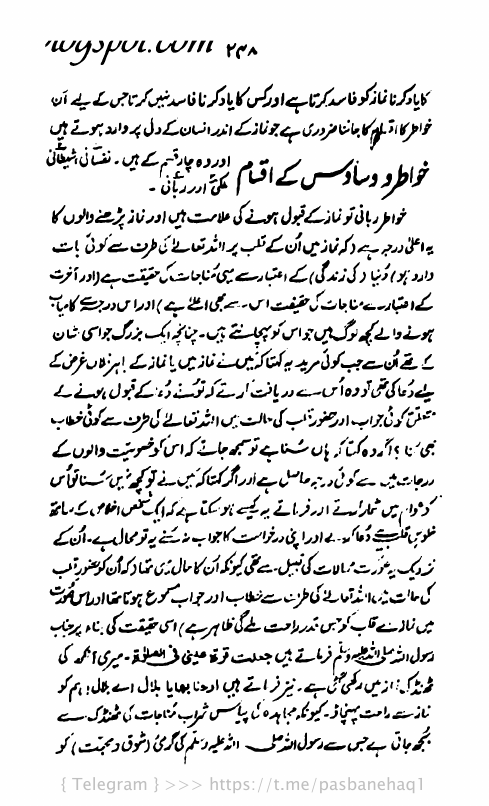 ۲۴۸
کا یاد کرنا نماز کو فاسد کرتا ہے اور کس کا یاد کرنا فاسد نہیں کرتا جس کے لیے ان
خواطر کا اقسام کا جاننا ضروری ہے جو نماز کے اندر انسان کے دل پر وارد ہوتے ہیں
خواطر و وساوس کے اقسام اور وہ چار قسم کے ہیں۔ نفسانی، شیطانی
ملکی اور ربانی۔
خواطر ربانی تو نماز کے قبول ہونے کی علامت ہیں اور نماز پڑھنے والوں کا
یہ اعلیٰ درجہ ہے (کہ نماز میں اُن کے قلب پر اللہ تعالےٰ کی طرف سے کوئی بات
وارد ہو) دُنیا (کی زندگی) کے اعتبار سے یہی مناجات کی حقیقت ہے (اور آخرت
کے اعتبار سے مناجات کی حقیقت اس سے بھی اعلےٰ ہے) اور اس درجے کا میاب
ہونے والے کچھ لوگ ہیں جو اس کو پہچانتے ہیں۔ چنانچہ ایک بزرگ جو اسی شان
کے تھے اُن سے جب کوئی مرید یہ کہتا کہ میں نے نماز میں یا نماز کے باہر فلاں غرض کے
لئے دُعا کی تھی تو وہ اُس سے دریافت کرتے کہ تو نے دُعا کے قبول ہونے کے
متعلق کوئی جواب اور حضور قلب کی حالت میں اللہ تعالےٰ کی طرف سے کوئی خطاب
بھی سُنا؟ اگر وہ کہتا کہ ہاں سُنا ہے تو سمجھ جاتے کہ اس کو خصوصیت والوں کے
درجات میں سے کوئی درجہ حاصل ہے اور اگر کہتا کہ میں نے تو کچھ نہیں سُنا تو اُس
کو عوام میں شمار کرتے اور فرماتے یہ کیسے ہو سکتا ہے کہ ایک شخص اخلاص کے ساتھ
خلوص قلب سے دُعا کرے اور اپنی درخواست کا جواب نہ سُنے یہ تو محال ہے۔ اُن کے
نزدیک یہ صورت محالات کی قبیل سے تھی کیونکہ اُن کا حال یہی تھا (کہ اُن کو حضور قلب
کی حالت میں اللہ تعالےٰ کی طرف سے خطاب اور جواب مسموع ہوتا تھا اور اس صورت
میں نماز سے قلب کو جس قدر راحت ملے گی ظاہر ہے) اسی حقیقت کی بناء پر جناب
رسول اللہ صلی اللہ علیہ وسلم فرماتے ہیں جعلت قرۃ عینی فی الصلوٰۃ۔ میری آنکھ کی
ٹھنڈک نماز میں رکھی گئی ہے۔ نیز فرماتے ہیں ارحنا بھا یا بلال اے بلال! ہم کو
نماز سے راحت پہنچاؤ۔ کیونکہ مجاہدہ کی پیاس شراب مناجات کی ٹھنڈک سے
بُجھ جاتی ہے جس سے رسول اللہ صلی اللہ علیہ وسلم کی گرمی (شوق و محبت) کو
{ Telegram } >>> https://t.me/pasbanehaq1